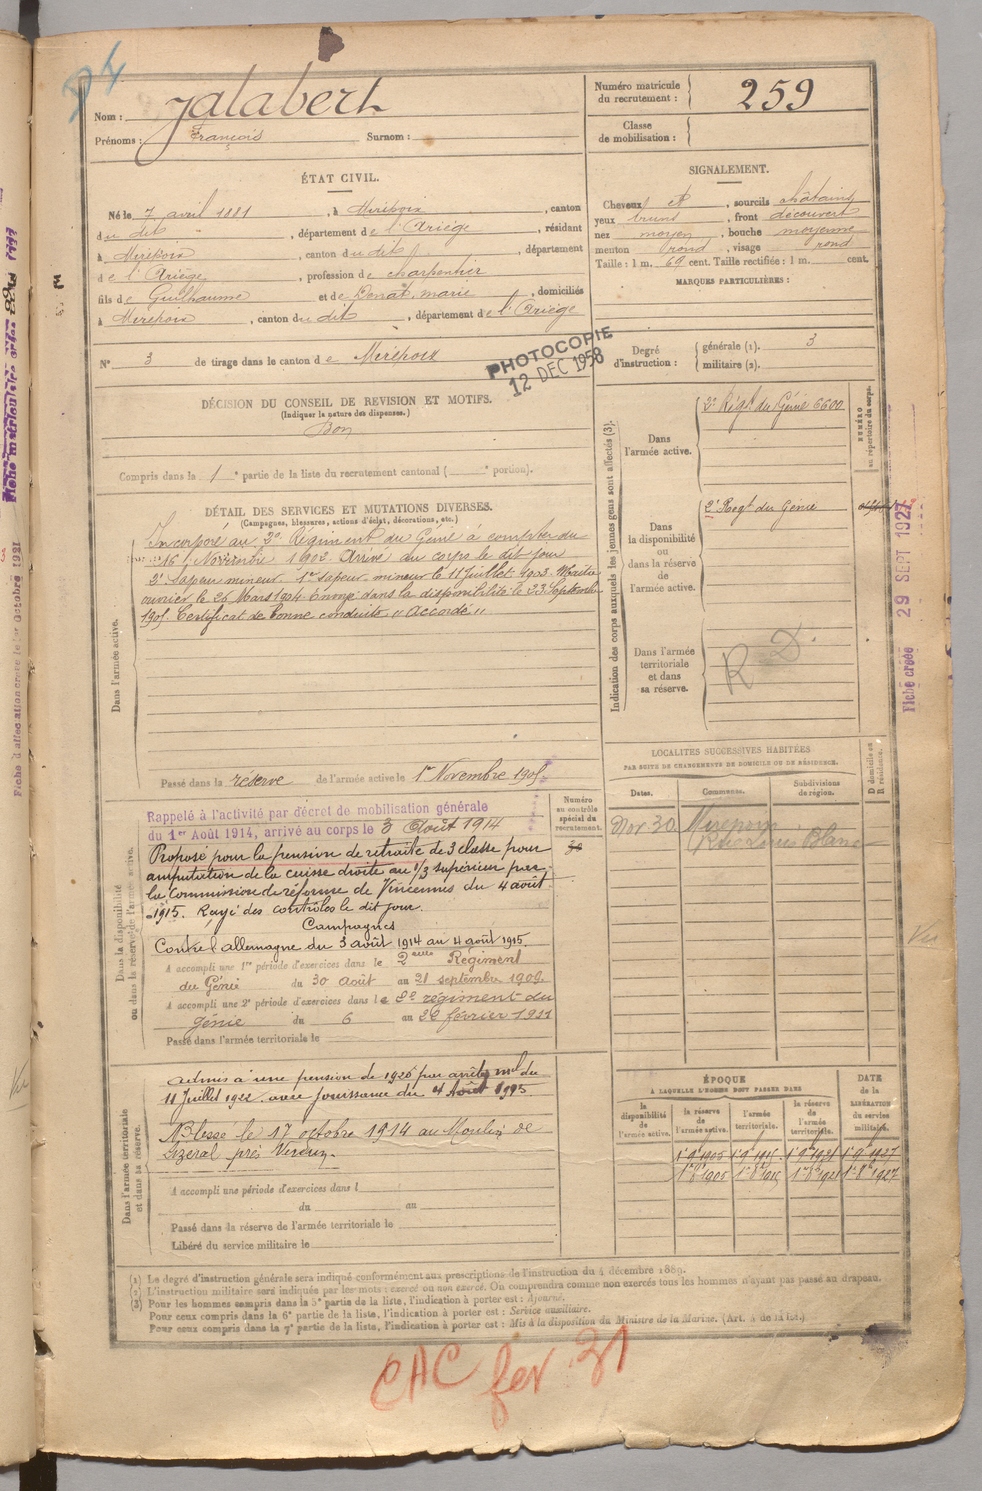 Nom : Jalabert
Prénoms : François Surnom :
Numéro matricule du recrutement : 259
Classe de mobilisation :
ÉTAT CIVIL.
Né le 7 avril 1881, à Mirepoix, canton
du dit, département de l'Ariège, résidant
à Mirepoix, canton du dit, département
de l'Ariège, profession de charpentier
fils de Guilhaume et de Donat, marie, domiciliés
à Mirepoix, canton du dit, département de l'Ariège
N° 3 de tirage dans le canton de Mirepoix
PHOTOCOPIE
12 DEC 1958
SIGNALEMENT.
Cheveux et, sourcils châtains
yeux bruns, front découvert
nez moyen, bouche moyenne
menton rond, visage rond
Taille : 1 m. 69 cent. Taille rectifiée : 1 m. cent.
MARQUES PARTICULIÈRES :
Degré d'instruction : générale (1). 3
militaire (2).
DÉCISION DU CONSEIL DE REVISION ET MOTIFS.
(Indiquer la nature des dispenses.)
Bon
Compris dans la 1e partie de la liste du recrutement cantonal ( e portion).
DÉTAIL DES SERVICES ET MUTATIONS DIVERSES.
(Campagnes, blessures, actions d'éclat, décorations, etc.)
Dans l'armée active.
Incorporé au 2e Régiment du Génie à compter du
16 Novembre 1902. Arrivé au corps le dit jour
2e sapeur mineur. 1er sapeur mineur le 11 Juillet 1903. Maître
ouvrier le 26 Mars 1904. Envoyé dans la disponibilité le 23 Septembre
1905. Certificat de bonne conduite " Accordé "
Passé dans la réserve de l'armée active le 1er Novembre 1905
Indication des corps auxquels les jeunes gens sont affectés (3).
Dans l'armée active.
2e Régt du Génie 6600
NUMÉRO au répertoire du corps.
Dans la disponibilité ou dans la réserve de l'armée active.
2e Regt du Génie
Dans l'armée territoriale et dans sa réserve.
R D
Fiche créée 29 SEPT 1927
Dans la disponibilité ou dans la réserve de l'armée active.
Rappelé à l'activité par décret de mobilisation générale
du 1er Août 1914, arrivé au corps le 3 Août 1914
Proposé pour la pension de retraite de 3 classe pour
amputation de la cuisse droite au 1/3 supérieur par
la Commission de réforme de Vincennes du 4 août
1915. Rayé des contrôles le dit jour.
Campagnes
Contre l'allemagne du 3 août 1914 au 4 août 1915.
A accompli une 1re période d'exercices dans le 2eme Regiment
du Génie du 30 août au 21 septembre 1908.
A accompli une 2e période d'exercices dans le 2e régiment du
génie du 6 au 22 février 1911
Passé dans l'armée territoriale le
Numéro au contrôle spécial du recrutement.
LOCALITÉS SUCCESSIVES HABITÉES
PAR SUITE DE CHANGEMENTS DE DOMICILE OU DE RÉSIDENCE.
Dates. Communes. Subdivisions de région. D domicile ou R résidence.
Nov 30 Mirepoix
Rue Louis Blanc
Dans l'armée territoriale et dans sa réserve.
admis à une pension de 1926 par arrêté mel du
11 Juillet 1922 avec jouissance du 4 Août 1915
Blessé le 17 octobre 1914 au Moulin de
près Verdun.
A accompli une période d'exercices dans l
du au
Passé dans la réserve de l'armée territoriale le
Libéré du service militaire le
ÉPOQUE
A LAQUELLE L'HOMME DOIT PASSER DANS
DATE de la LIBÉRATION du service militaire.
la disponibilité de l'armée active. la réserve de l'armée active. l'armée territoriale. la réserve de l'armée territoriale.
1er 9bre 1905 1er 9bre 1915 1er 9bre 1921 1er 9bre 1927
1er 8bre 1905 1er 8bre 1915 1er 8bre 1921 1er 8bre 1927
(1) Le degré d'instruction générale sera indiqué conformément aux prescriptions de l'instruction du 4 décembre 1889.
(2) L'instruction militaire sera indiquée par les mots : exercé ou non exercé. On comprendra comme non exercés tous les hommes n'ayant pas passé au drapeau.
(3) Pour les hommes compris dans la 5e partie de la liste, l'indication à porter est : Ajourné.
Pour ceux compris dans la 6e partie de la liste, l'indication à porter est : Service auxiliaire.
Pour ceux compris dans la 7e partie de la liste, l'indication à porter est : Mis à la disposition du Ministre de la Marine. (Art. 4 de la loi.)
CAC fev 31